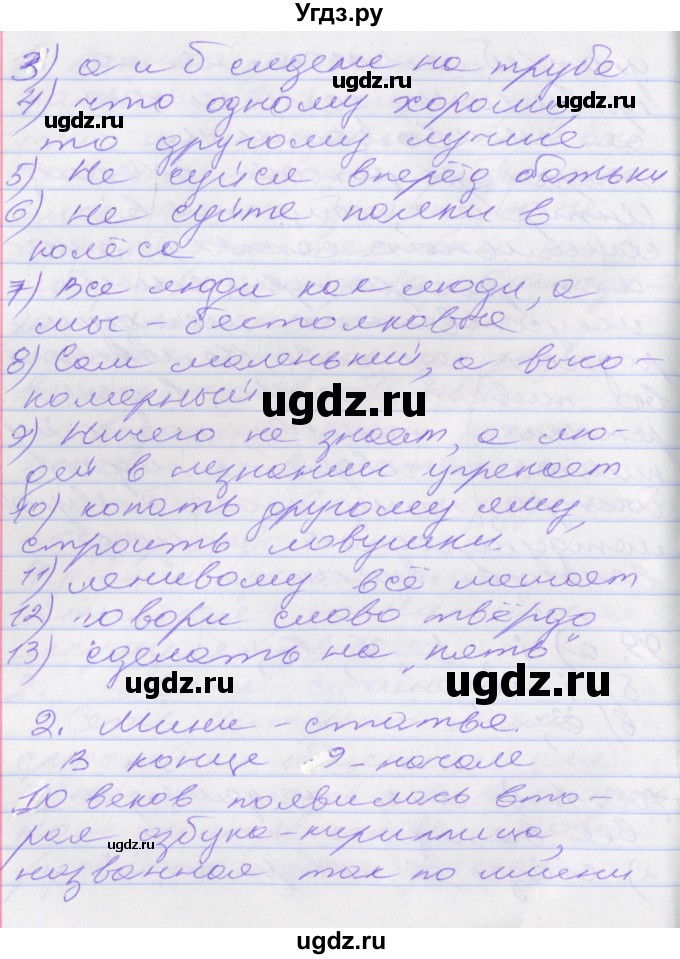 Угдз.ру
3) а и б сидели на трубе
4) что одному хорошо,
ugdz.ru ugdz.ru
то другому лучше
5) Не суйся вперёд батьки
6) не суйте палки в
колёса
7) Все люди как люди, а
мы - бестолковые
8) Сам маленький, а высо-
комерный
ugdz.ru
9) Ничего не знает, а лю-
дей в незнании упрекает
10) копать другому яму,
строить ловушки.
11) ленивому всё мешает
12) говори слово твёрдо
13) сделать на "пять"
ugdz.ru ugdz.ru
2. Мини-статья.
В конце 9-начале
10 веков появилась вто-
рая азбука-кириллица,
ugdz.ru
названная так по имени
ugdz.ru
ugdz.ru